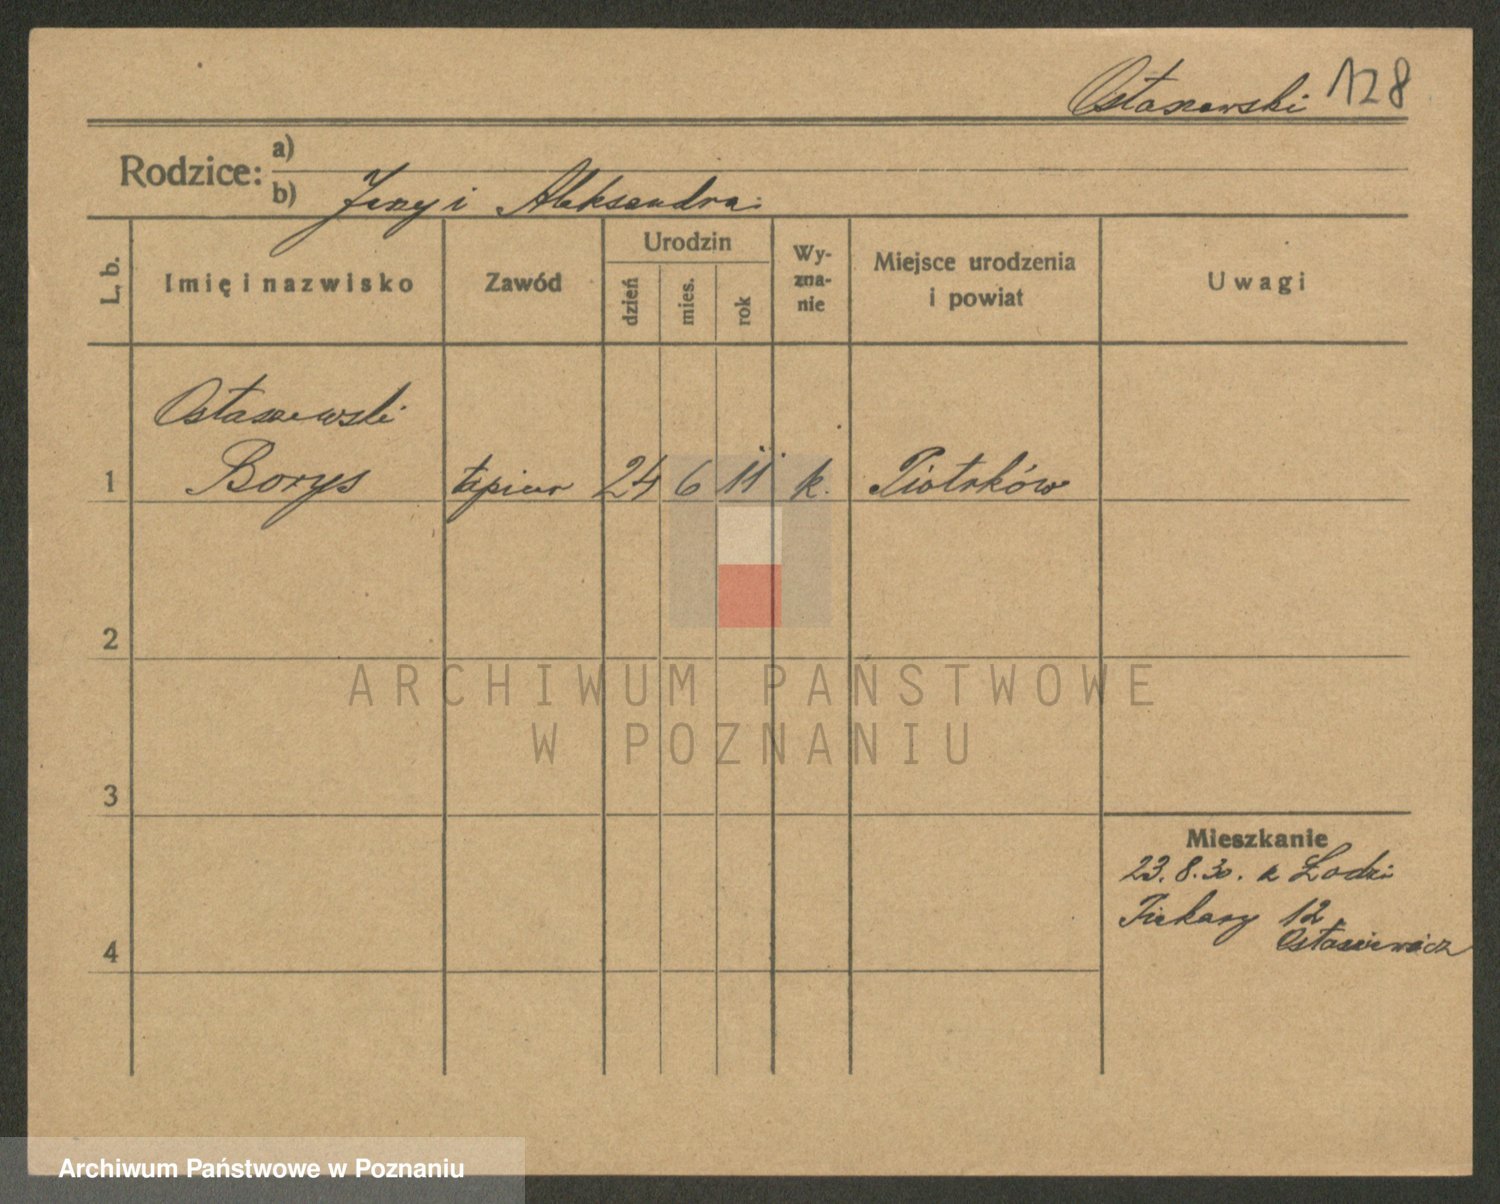 Ostaszewski 128
Rodzice: a)
b) Jerzy i Aleksandra
L. b.
Imię i nazwisko
Zawód
Urodzin
dzień
mies.
rok
Wy-
zna-
nie
Miejsce urodzenia
i powiat
Uwagi
Ostaszewski
1 Borys tapicer 24 6 11 k. Piotrków
2
3
4
Mieszkanie
23. 8. 30. z Łodzi
Piekary 12
Ostasiewicz
ARCHIWUM PAŃSTWOWE
W POZNANIU
Archiwum Państwowe w Poznaniu